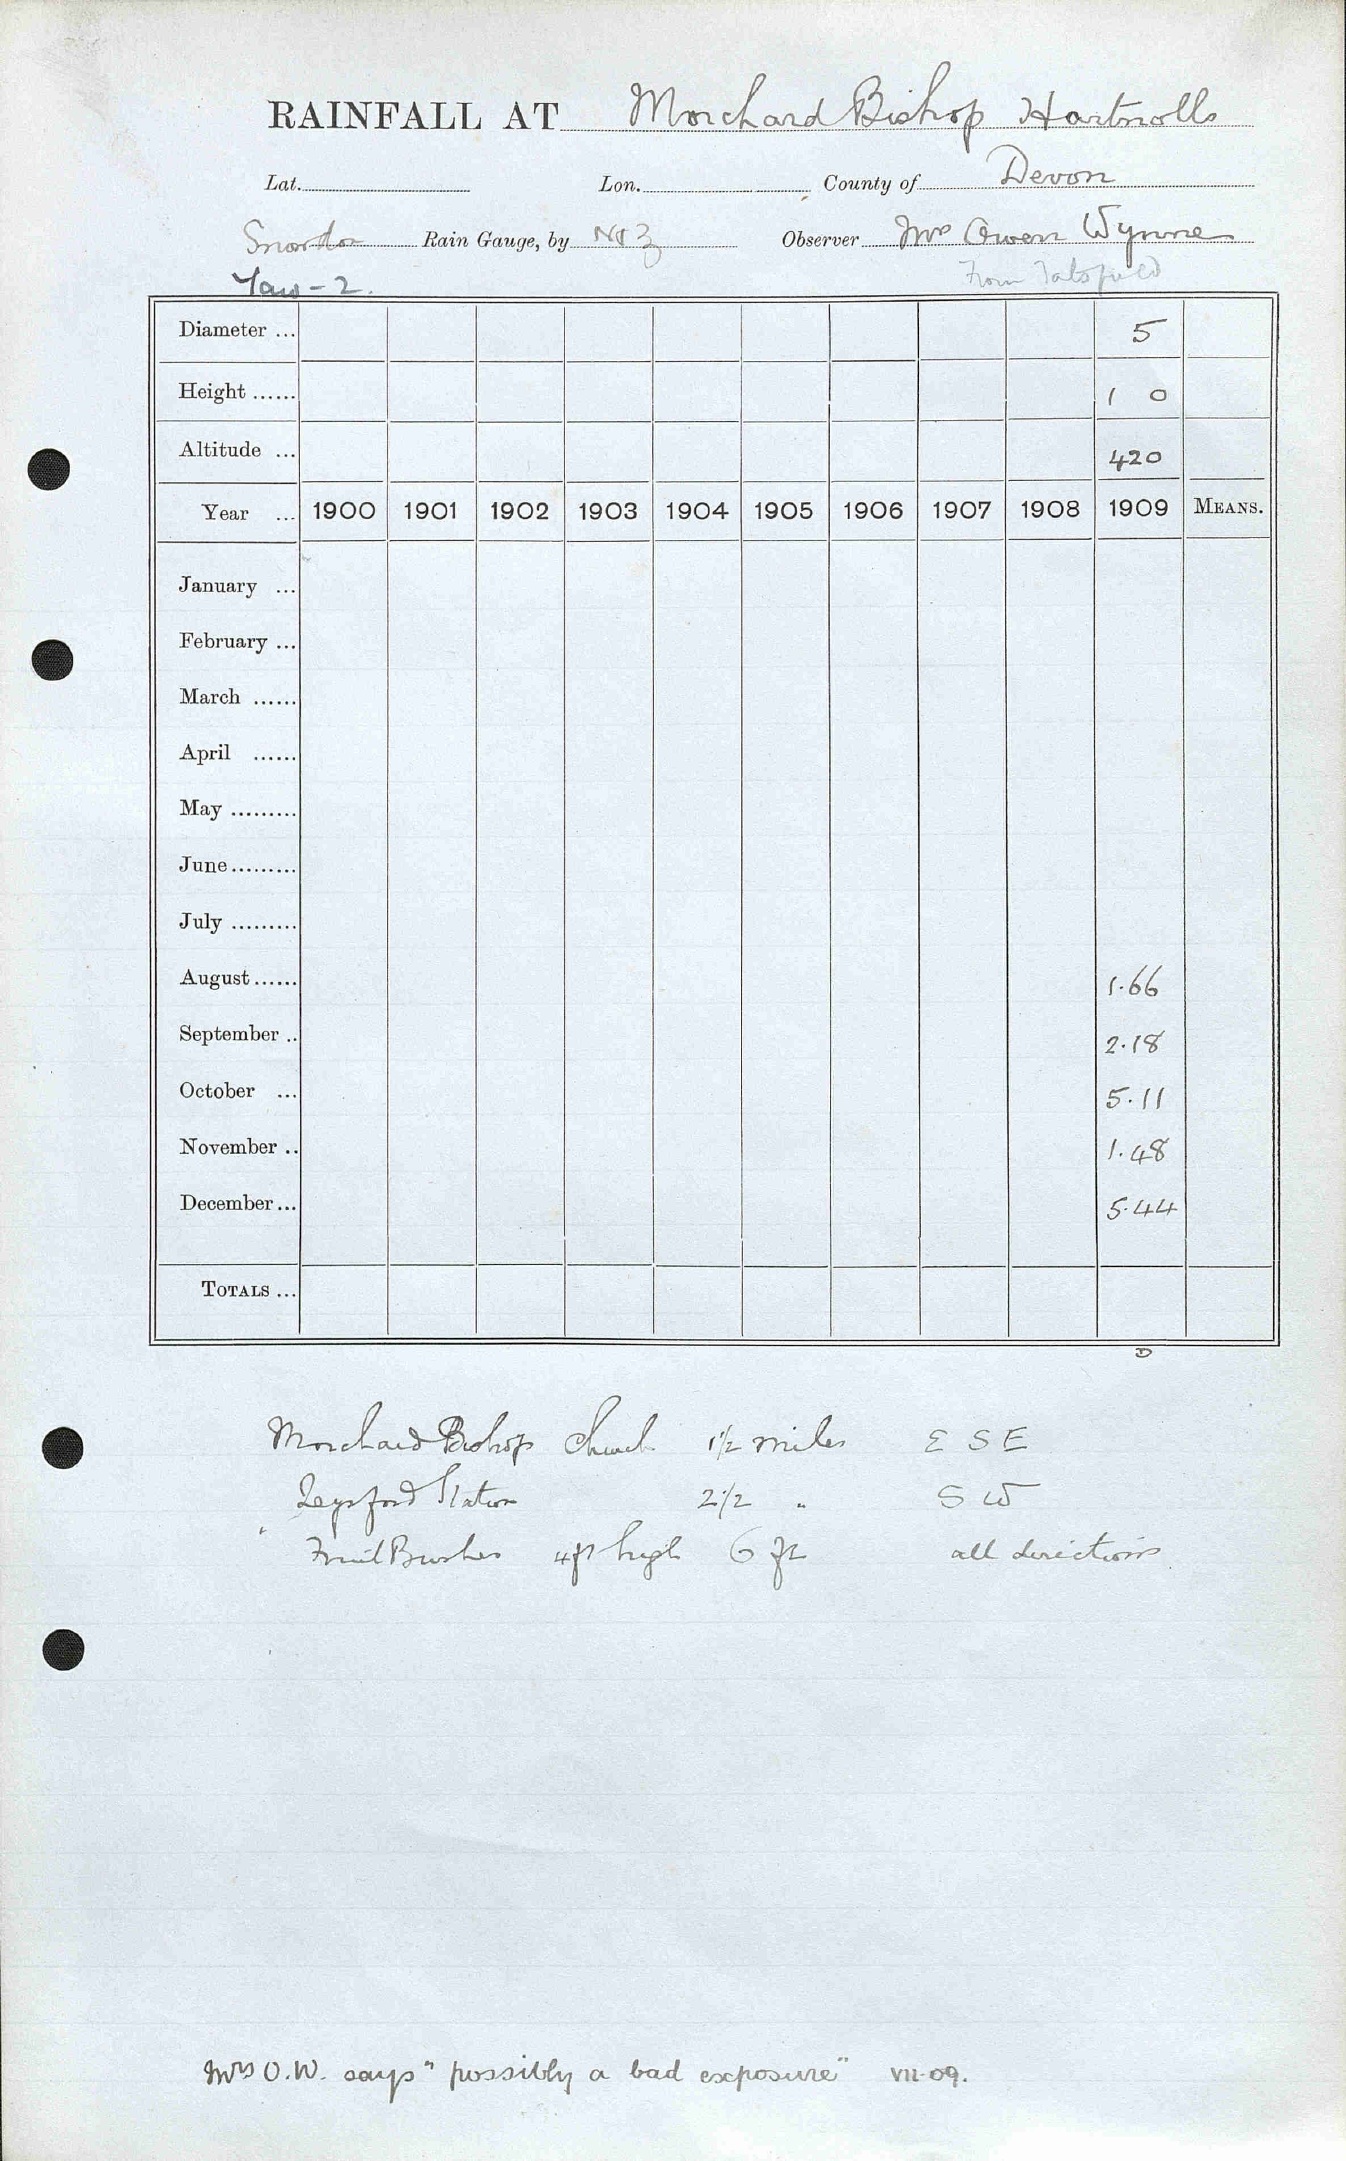 RAINFALL AT Morchard Bishop Hartnolls
Lat. Lon. County of Devon
Snowdon Rain Gauge, by N & Z Observer Mrs Owen Wynne
Taw - 2. From Tatsfield
Diameter ... 5
Height ...... 1 0
Altitude ... 420
Year ... 1900 1901 1902 1903 1904 1905 1906 1907 1908 1909 MEANS.
January ...
February ...
March ......
April ......
May .........
June.........
July .........
August...... 1.66
September .. 2.18
October ... 5.11
November .. 1.48
December... 5.44
TOTALS ...
D
Morchard Bishop Church 1½ miles E S E
Station 2½ " S W
Fruit Bushes 4ft high 6 ft all directions
Mrs O.W. says "possibly a bad exposure" VII-09.